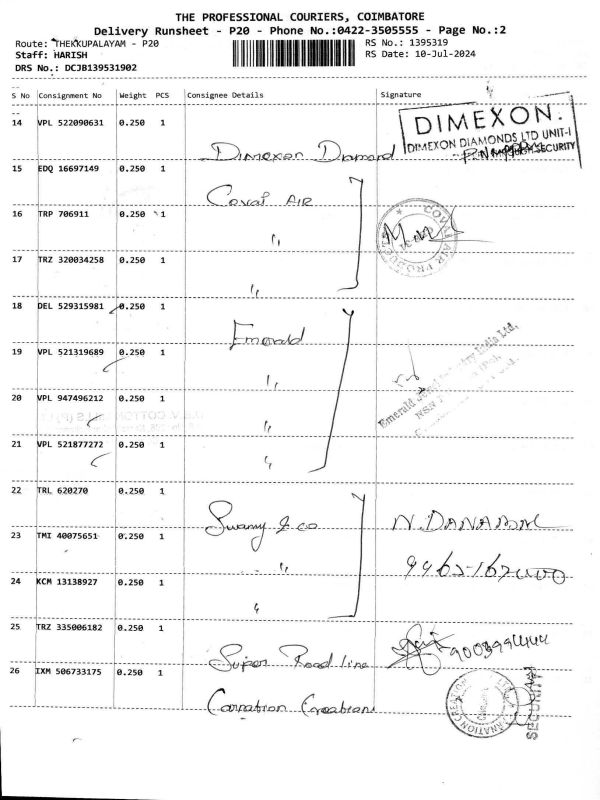 THE PROFESSIONAL COURIERS, COIMBATORE
Delivery Runsheet - P20 - Phone No.:0422-3505555 - Page No.:2
Route: THEKKUPALAYAM - P20
RS No.: 1395319
Staff: HARISH
RS Date: 10-Jul-2024
DRS No.: DCJB139531902
S No Consignment No Weight PCS Consignee Details Signature
14 VPL 522090631 0.250 1
DIMEXON.
DIMEXON DIAMONDS LTD UNIT-I
SECURITY
Dimexon Diamond
15 EDQ 16697149 0.250 1
Covai AIR
16 TRP 706911 0.250 1
"
COVAI AIR
17 TRZ 320034258 0.250 1
"
18 DEL 529315981 0.250 1
Emerald
19 VPL 521319689 0.250 1
"
Emerald Jewel Industry India Ltd.
20 VPL 947496212 0.250 1
"
21 VPL 521877272 0.250 1
"
22 TRL 620270 0.250 1
Swamy & co N. DANABAL
23 TMI 40075651 0.250 1
"
24 KCM 13138927 0.250 1
"
25 TRZ 335006182 0.250 1
Super Road line
26 IXM 506733175 0.250 1
Carnation Creations
CARNATION CREATION
SECURITY